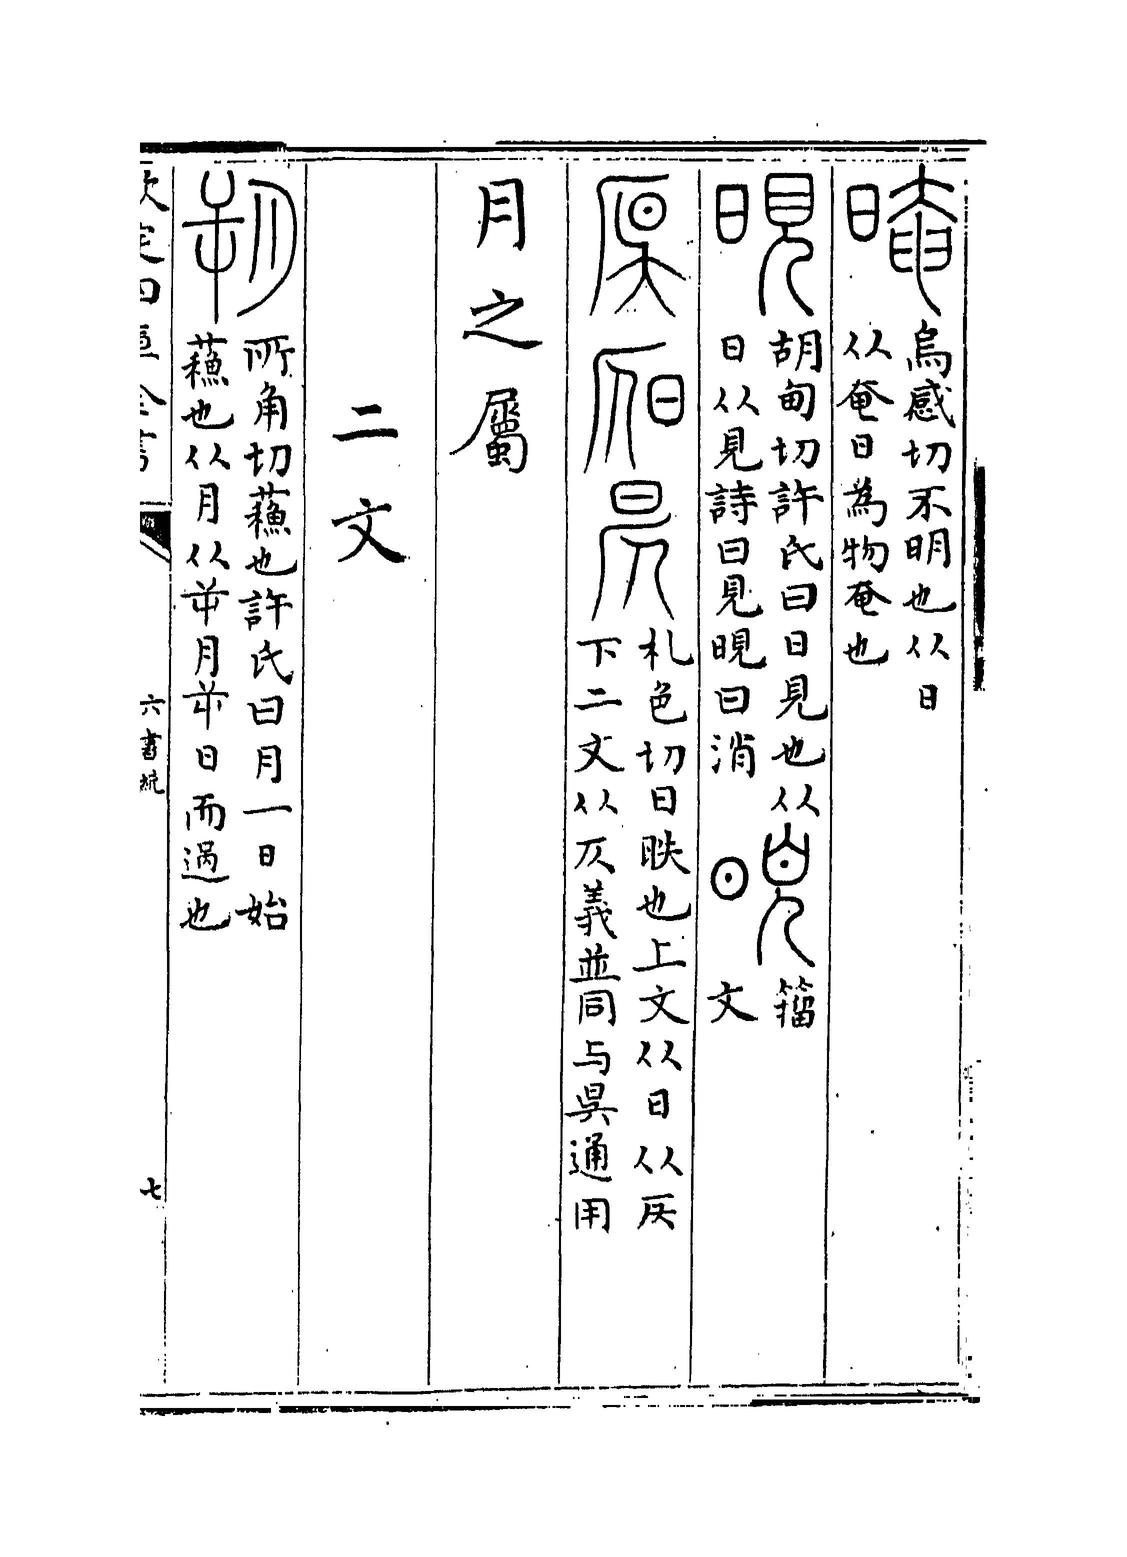 晻
烏感切不明也从日
从奄日為物奄也
晛
胡甸切許氏曰日見也从
日从見詩曰見晛曰消
籀
文
札色切日昳也上文从日从𠨮
下二文从仄義並同与吳通用
月之屬
二文
朔
所角切蘓也許氏曰月一日始
蘓也从月从屰月屰日而過也
欽定四庫全書
六書統
七